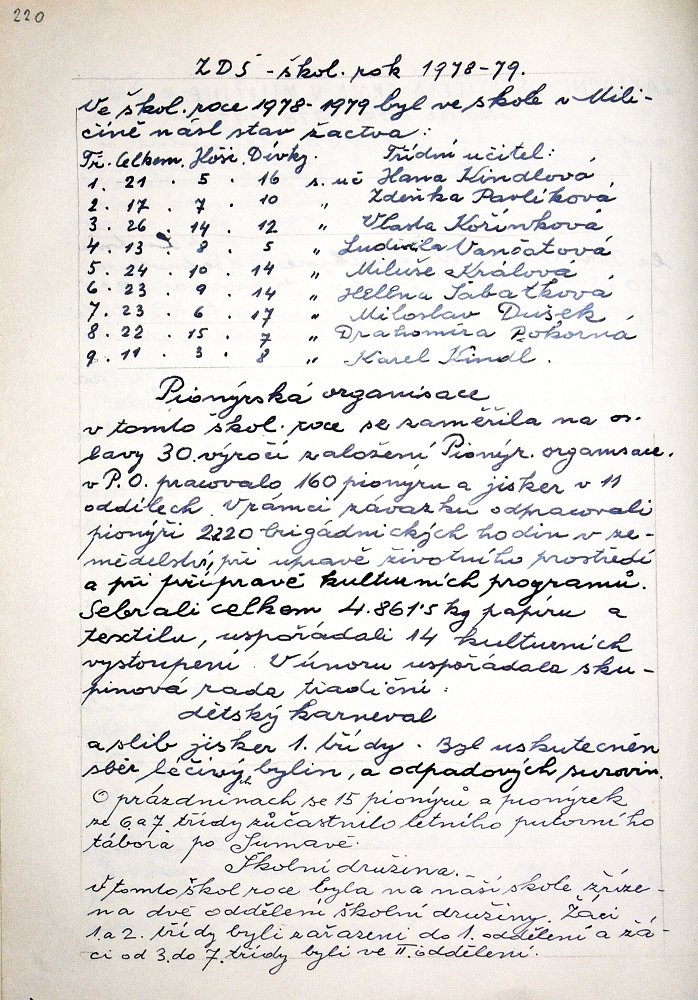 220
ZDŠ - škol. rok 1978-79.
Ve škol. roce 1978-1979 byl ve škole v Mili-
číně násl stav žactva:
Tř. Celkem. Hoši. Dívky. Třídní učitel:
1. 21 . 5 . 16 s. uč Hana Kindlová
2. 17 . 7 . 10 „ Zdeňka Pavlíková
3. 26 . 14 . 12 „ Vlasta Kořínková
4. 13 . 8 . 5 „ Ludmila Vančatová
5. 24 . 10 . 14 „ Miluše Králová
6. 23 . 9 . 14 „ Helena Šabatková
7. 23 . 6 . 17 „ Miloslav Dušek
8. 22 . 15 . 7 „ Drahomíra Pokorná
9. 11 . 3 . 8 „ Karel Kindl.
Pionýrská organisace
v tomto škol. roce se zaměřila na os-
lavy 30. výročí založení Pionýr. organisace.
v P.O. pracovalo 160 pionýru a jisker v 11
oddílech. V rámci závazku odpracovali
pionýři 2220 brigádnických hodin v ze-
mědelství, při upravě životního prostředí
a při přípravě kulturních programů.
Sebrali celkem 4.861'5 kg papíru a
textilu, uspořádali 14 kulturních
vystoupení. V únoru uspořádala sku-
pinová rada tradiční:
dětský karneval
a slib jisker 1. třídy. Byl uskutecněn
sběr léčivých bylin, a odpadových surovin.
O prázdninach se 15 pionýrů a pionýrek
ze 6. a 7. třídy zůčastnilo letního putovního
tábora po Šumavě.
Školní družina.
V tomto škol roce byla na naší skole zříze-
na dvě oddělení školní družiny. Žáci
1. a 2. třídy byli zařazeni do 1. oddělení a žá-
ci od 3. do 7. třídy byli ve II. oddělení.